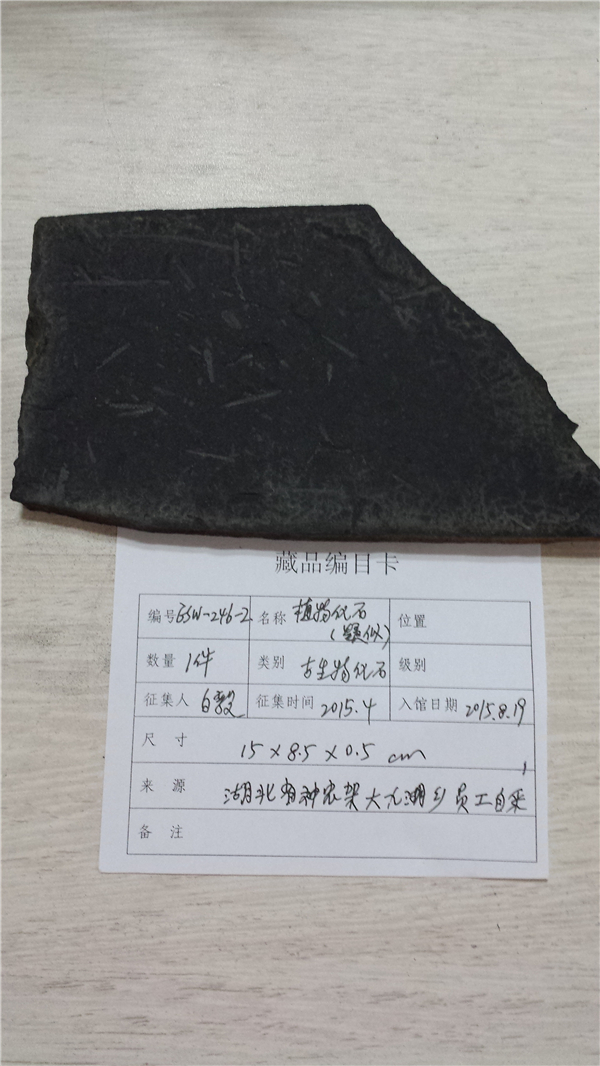 藏品编目卡
编号 GSW-246-2 名称 植物化石 (疑似) 位置
数量 1件 类别 古生物化石 级别
征集人 白 征集时间 2015.4 入馆日期 2015.8.19
尺寸 15×8.5×0.5 cm
来源 湖北省神农架大九湖乡员工自采
备注